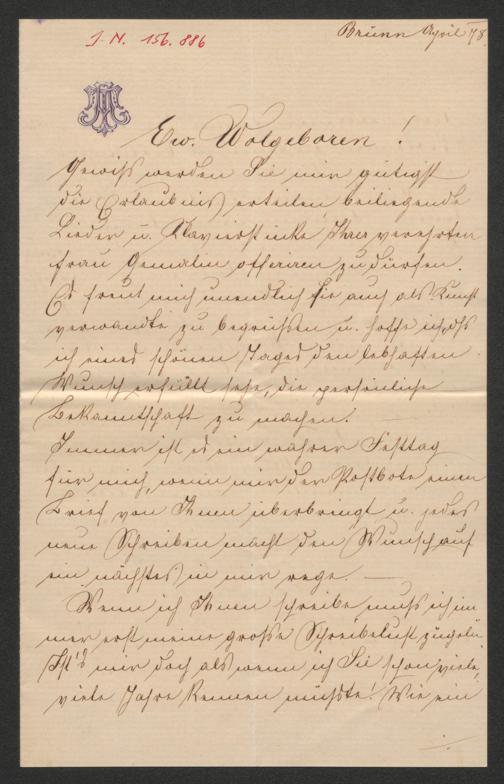 J. N. 156.886
Brünn April 78.
Ew. Wolgeboren!
Gewiss werden Sie mir gütigst
die Erlaubnis erteilen beiliegende
Lieder u. Klavierstücke Ihrer verehrten
Frau Gemalin offeriren zu dürfen.
Es freut mich unendlich Sie auch als Kunst
verwandte zu begrüssen u. hoffe ich, dss
ich eines schönen Tages den lebhaften
Wunsch erfüllt sehe, die persönliche
Bekanntschaft zu machen.
Immer ist es ein wahrer Festtag
für mich, wenn mir der Postbote einen
Brief von Ihnen überbringt u. jedes
neue Schreiben macht den Wunsch auf
ein nächstes in mir rege. —
Wenn ich Ihnen schreibe muss ich im
mer erst meine grosse Schreibelust zügeln
Ist's mir doch als wenn ich Sie schon viele,
viele Jahre kennen müsste! Wie ein